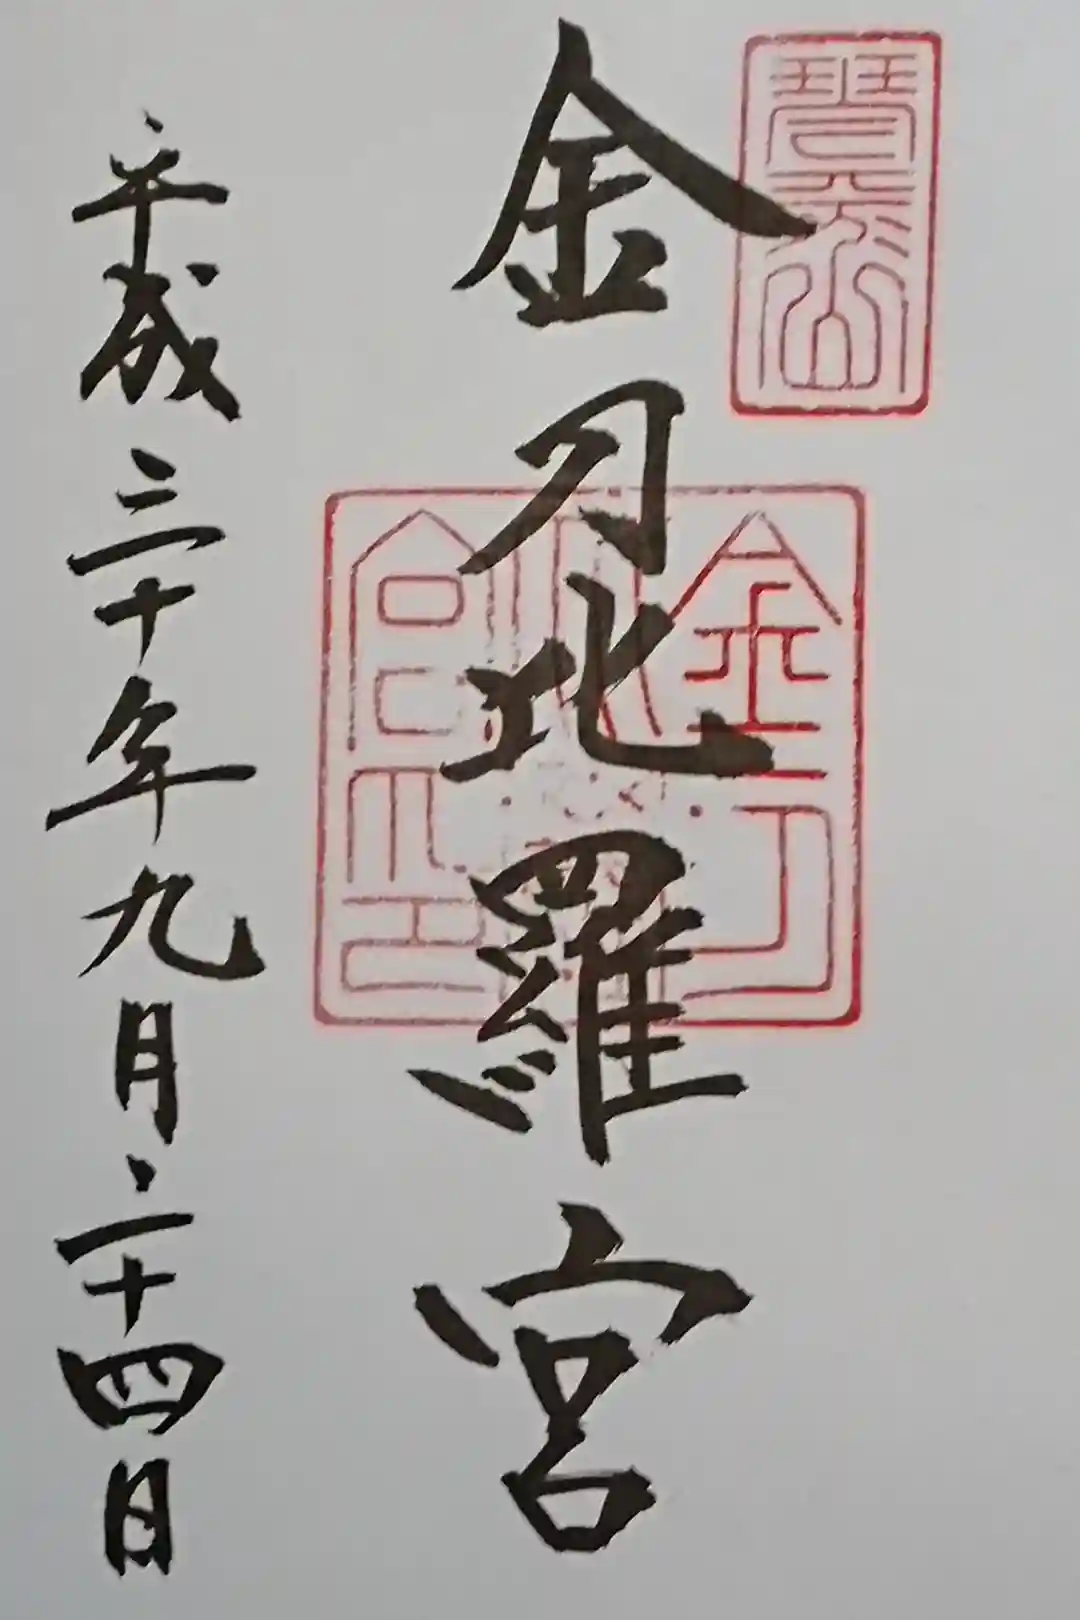 琴平山
金刀比羅宮
金刀比羅宮印
平成三十年九月二十四日